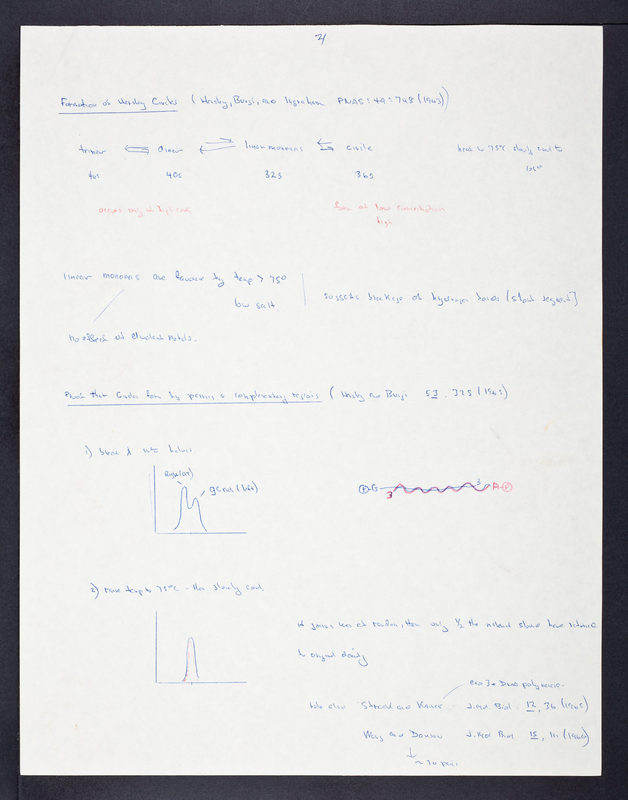 Formation of Hershey Circles (Hershey, Burgi, and Ingraham PNAS: 49: 748 (1963))
trimer dimer linear monomers circle heat to 75° slowly cool to
40s 32s 36s
occurs only at high conc. low concentration
high
linear monomers are favored by temp > 75°
low salt
suggests breakage of hydrogen bonds (short segment)
no effect of divalent metals.
Proof that Circles form by pairing of complementary regions (Hershey and Burgi 53, 325 (1965)
1) Break λ into halves
Right (AT)
GC rich (left)
G 3 3 A
2) raise temp to 75°C - then slowly cool
if joins were at random, then only 1/2 the material should have returned
to original density
exo 3 + DNA polymerase.
See also Strack and Kaiser J. Mol. Biol. 12, 36 (1965)
Wang and Davidson J. Mol. Biol. 15, (1966)